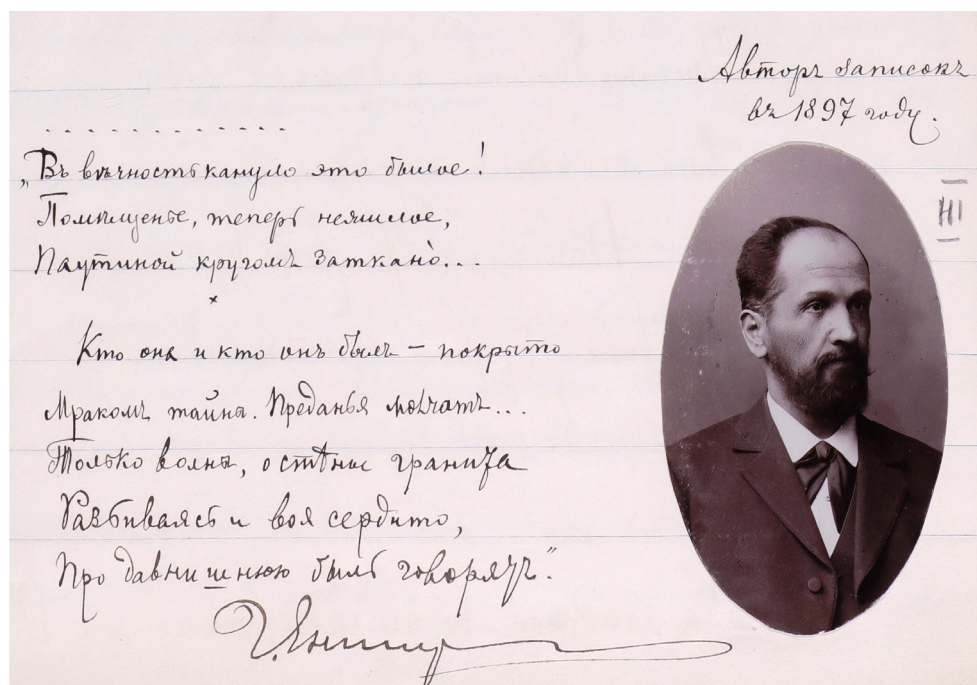 Авторъ записокъ
въ 1897 году.
. . . . . . . . . . . . .
„Въ вѣчность кануло это былое!
Помѣщенье, теперь нежилое,
Паутиной кругомъ заткано̀...
×
Кто она и кто онъ былъ – покрыто
Мракомъ тайны. Преданья молчатъ...
Только волны, о стѣны гранита
Разбиваясь и воя сердито,
Про давнишнюю быль говорятъ".
III